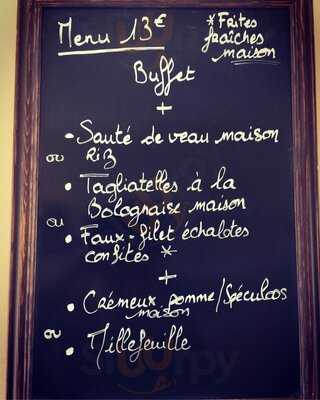 Menu 13€
*Frites
fraîches
maison
Buffet
+
• Sauté de veau maison
Riz
ou
• Tagliatelles à la
Bolognaise maison
ou
• Faux-filet échalotes
confites *
+
• Crémeux pomme/Spéculoos
maison
ou
• Millefeuille